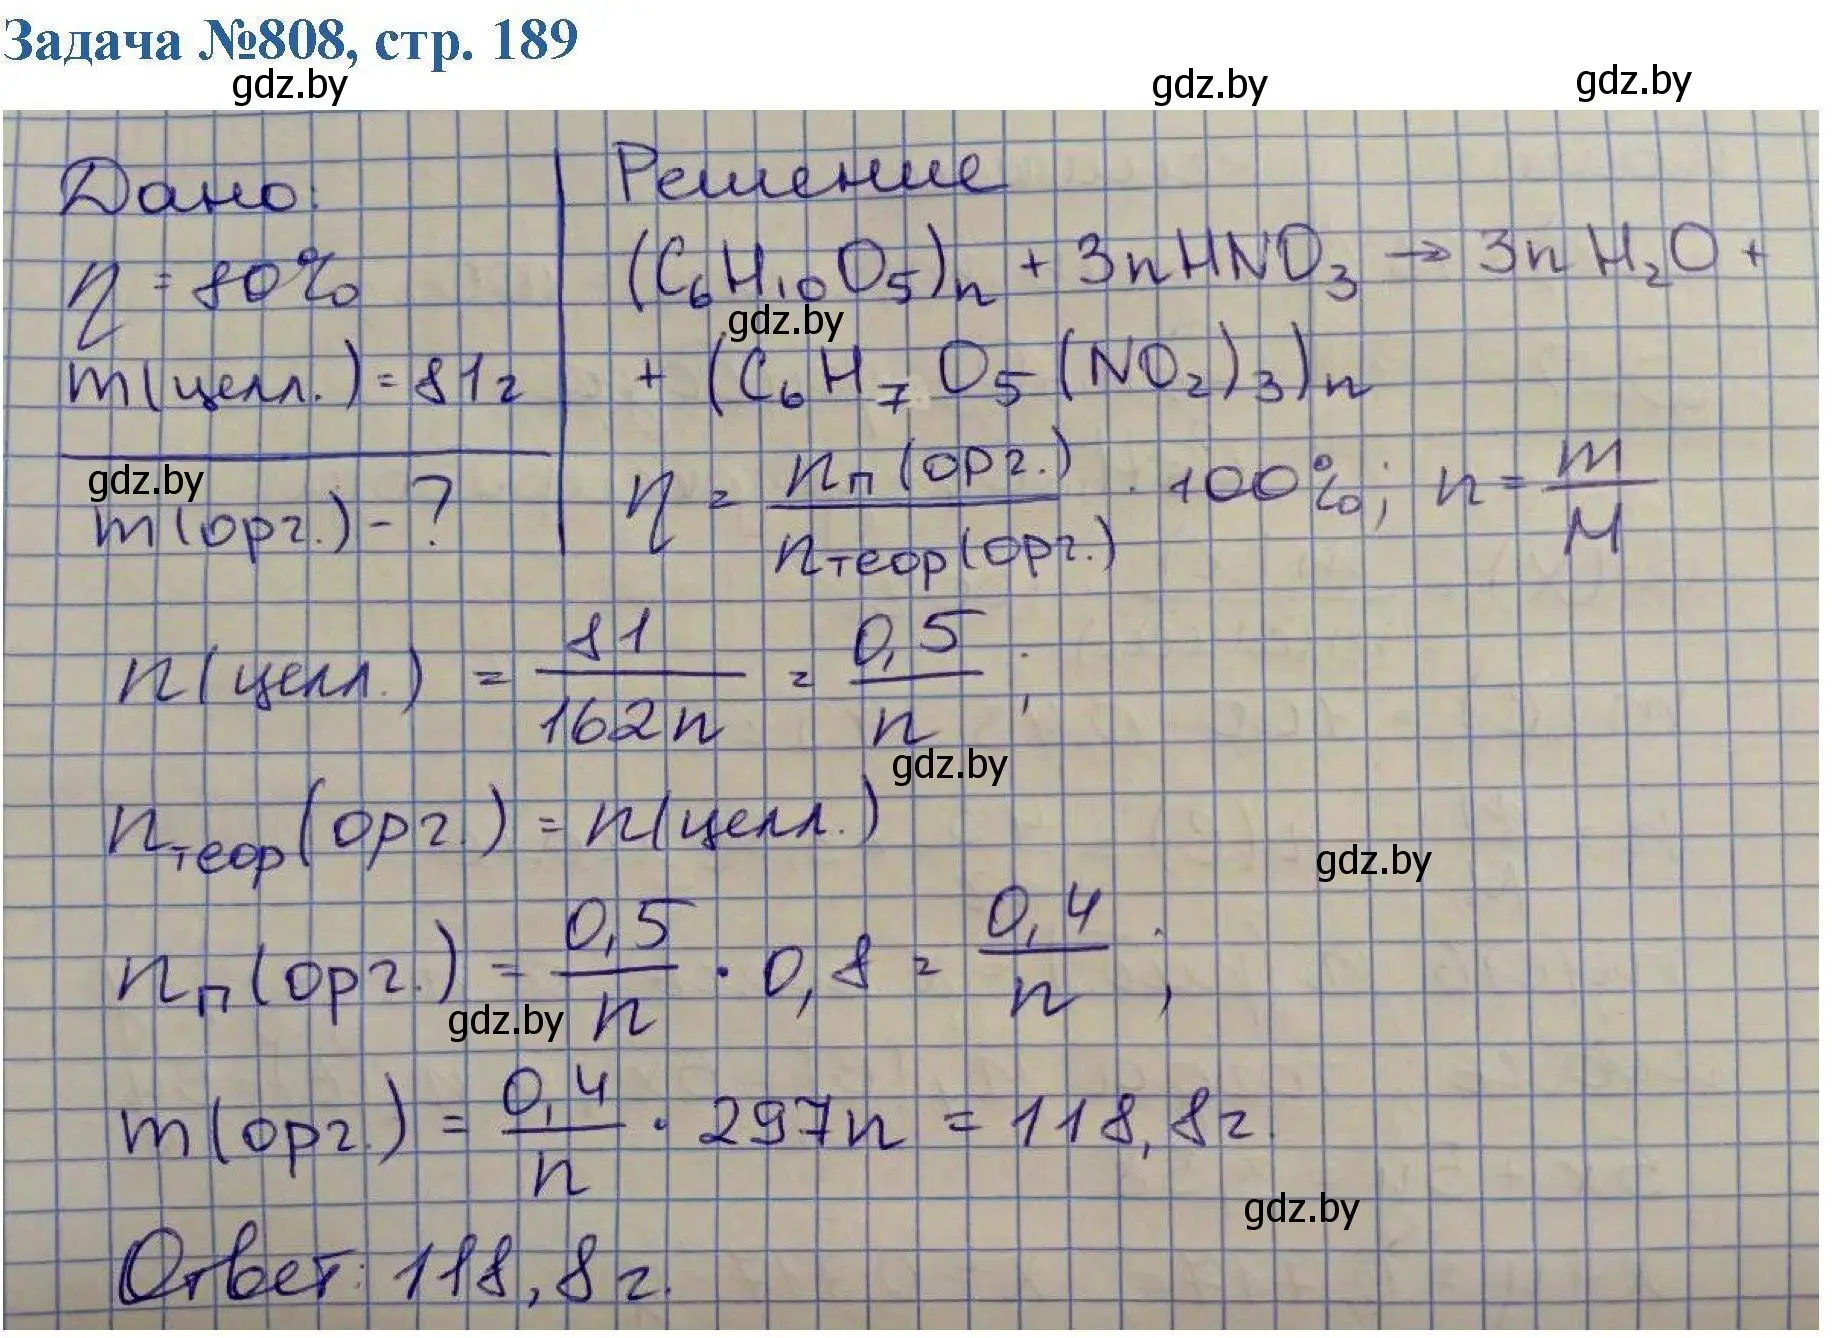 Задача №808, стр. 189
gdz.by gdz.by gdz.by
Дано:
η = 80%
m(целл.) = 81г
gdz.by
m(орг.) - ?
Решение
(C₆H₁₀O₅)ₙ + 3nHNO₃ → 3nH₂O +
gdz.by
+ (C₆H₇O₅(NO₂)₃)ₙ
η = nп(орг.) / nтеор(орг.) · 100%; n = m / M
n(целл.) = 81 / 162n = 0,5 / n ;
gdz.by
nтеор(орг.) = n(целл.)
gdz.by
nп(орг.) = 0,5 / n · 0,8 = 0,4 / n ;
gdz.by
m(орг.) = 0,4 / n · 297n = 118,8г.
gdz.by
Ответ: 118,8г.